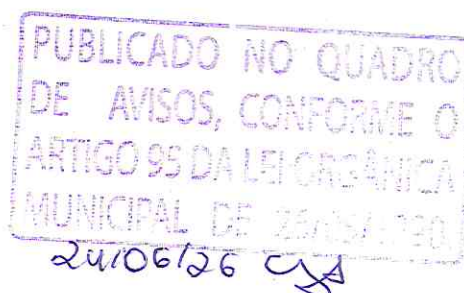 PUBLICADO NO QUADRO
DE AVISOS, CONFORME O
ARTIGO 95 DA LEI ORGÂNICA
MUNICIPAL DE
24/06/26